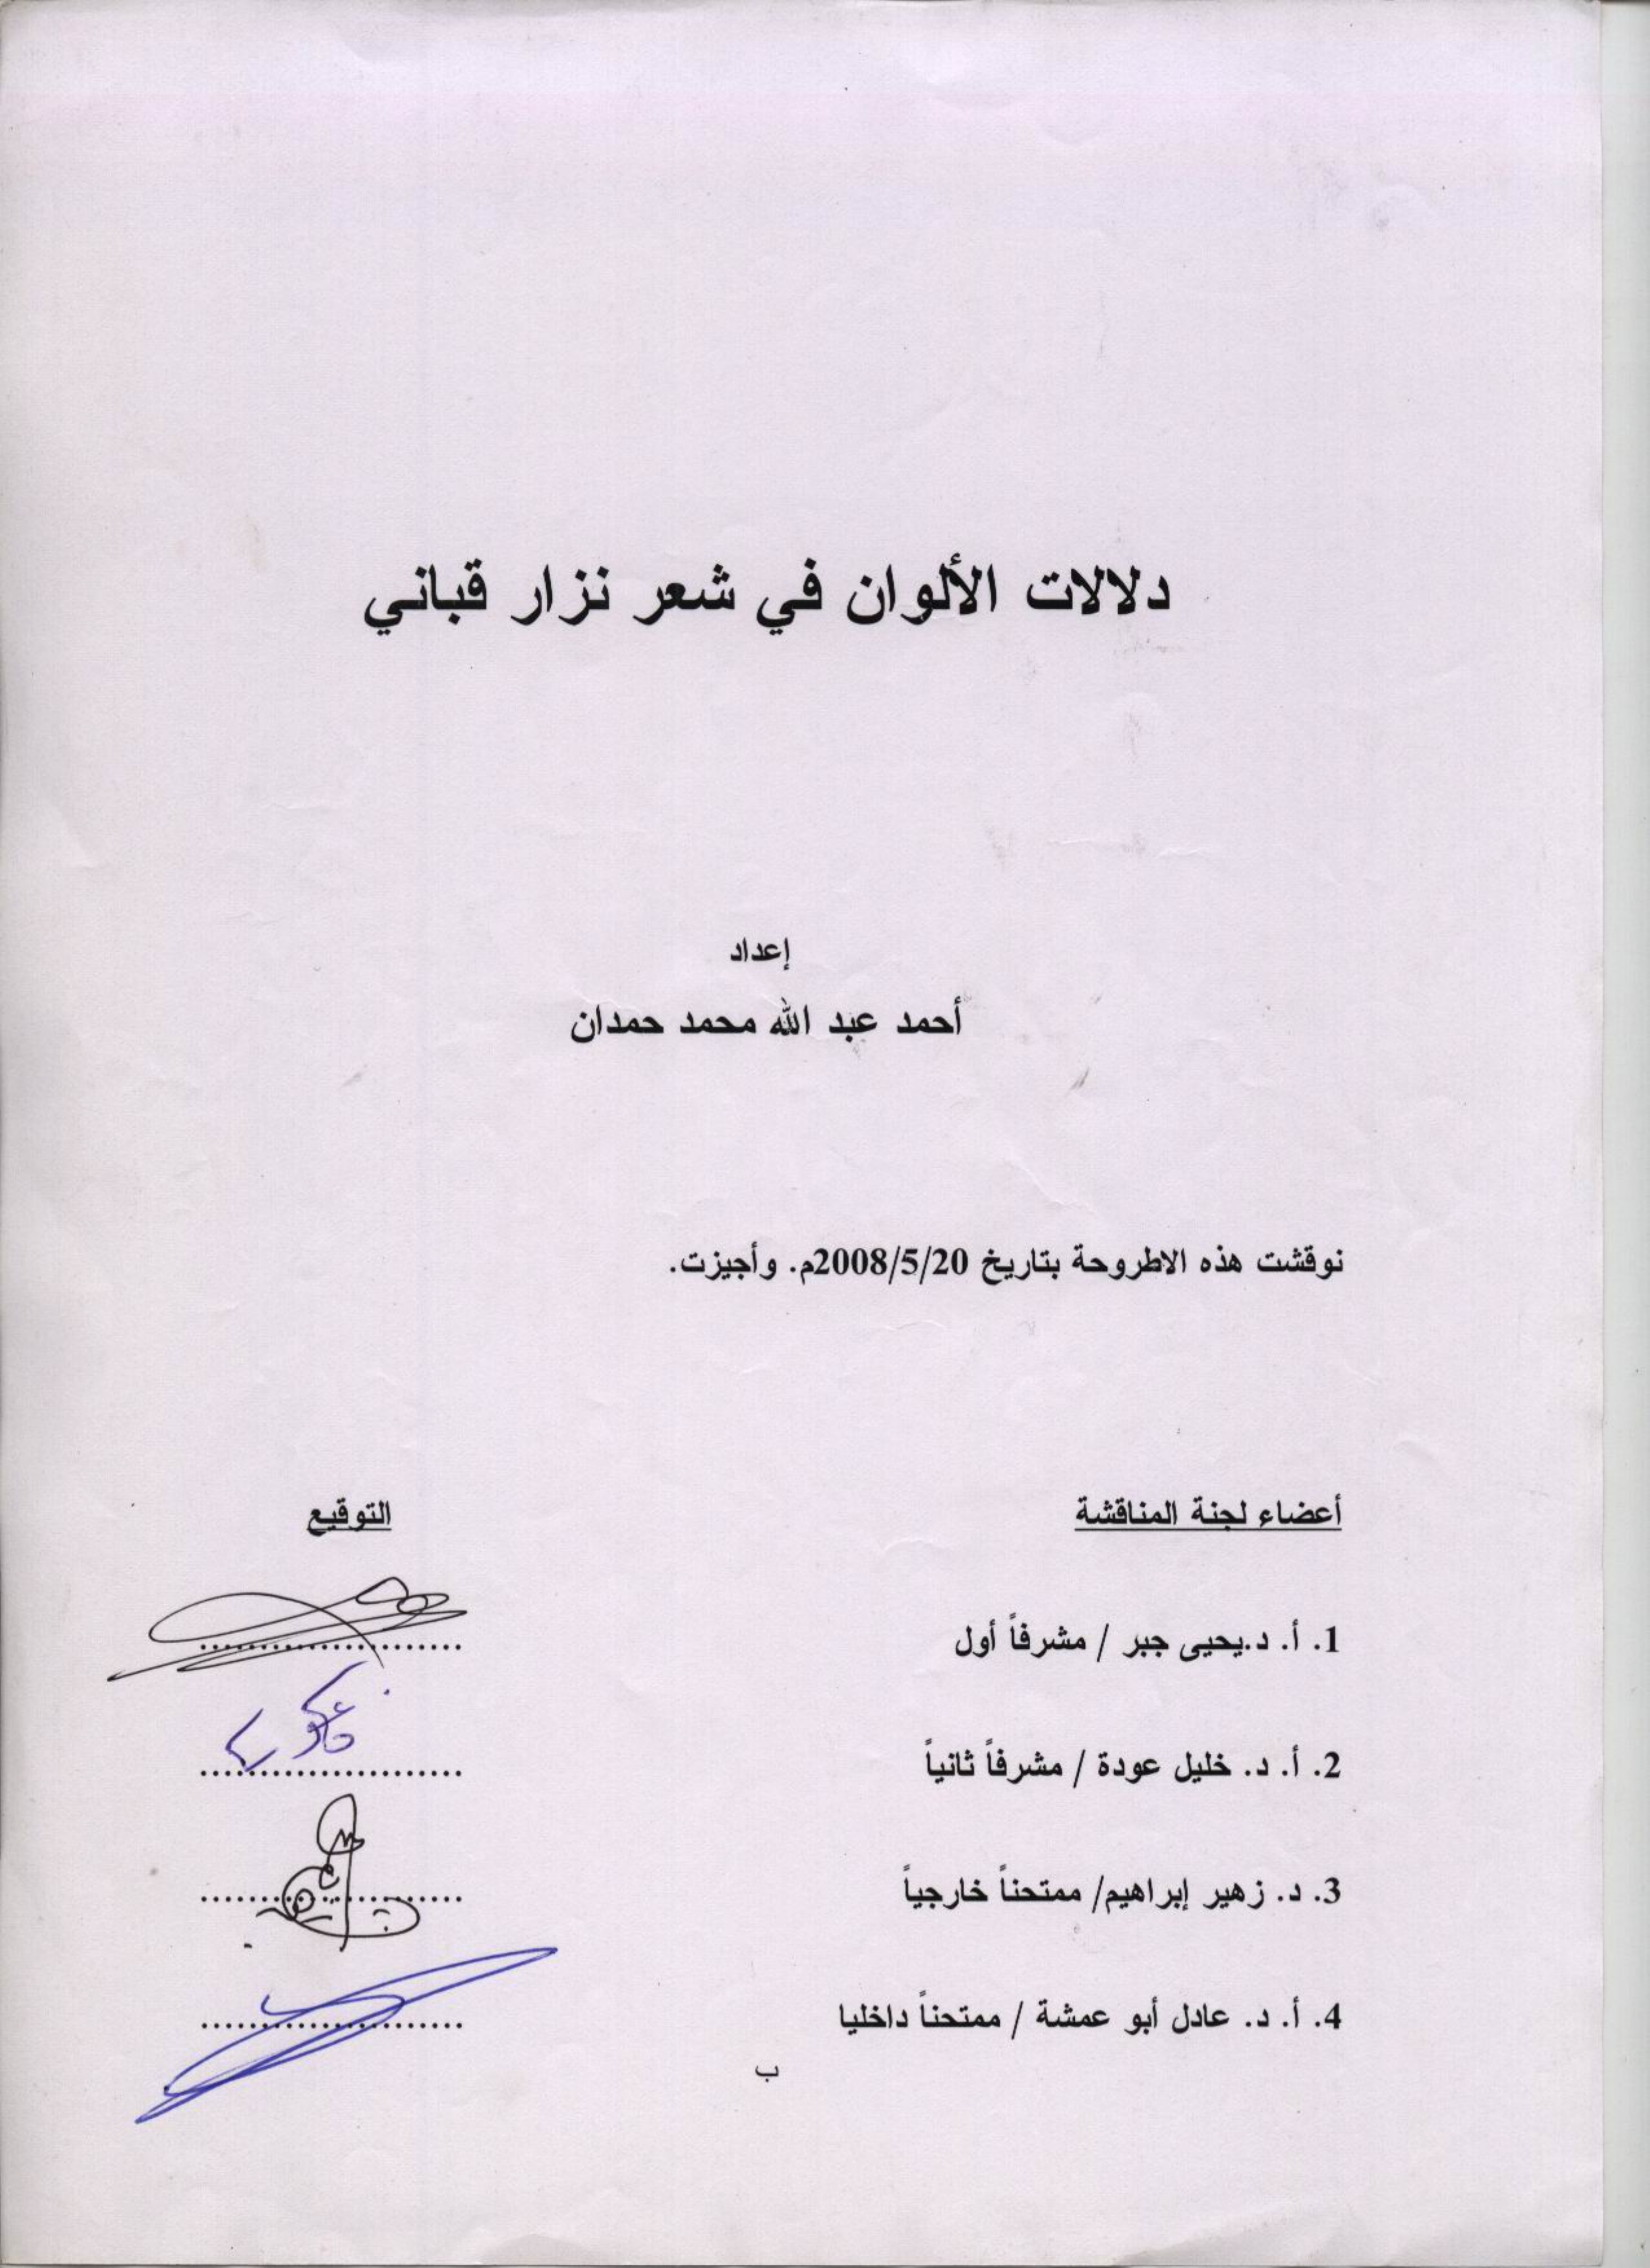 دلالات الألوان في شعر نزار قباني
إعداد
أحمد عبد الله محمد حمدان
نوقشت هذه الاطروحة بتاريخ 2008/5/20م. وأجيزت.
أعضاء لجنة المناقشة التوقيع
1. أ. د.يحيى جبر / مشرفاً أول ......................
2. أ. د. خليل عودة / مشرفاً ثانياً ......................
3. د. زهير إبراهيم/ ممتحناً خارجياً ......................
4. أ. د. عادل أبو عمشة / ممتحناً داخليا ......................
ب